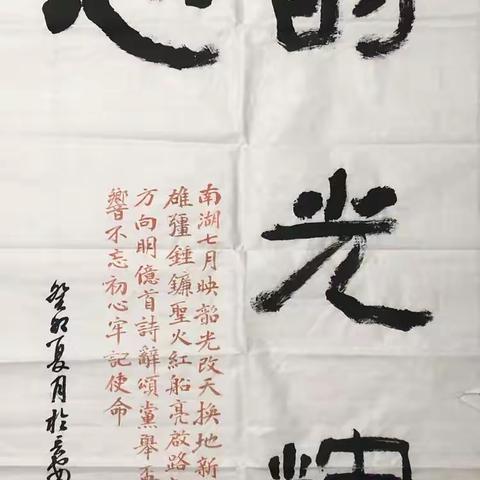 的光
南湖七月映韶光改天換地新
雄疆錘鐮聖火紅船亮啟路
方向明億首詩辭頌黨舉
響不忘初心牢記使命
癸卯夏月於